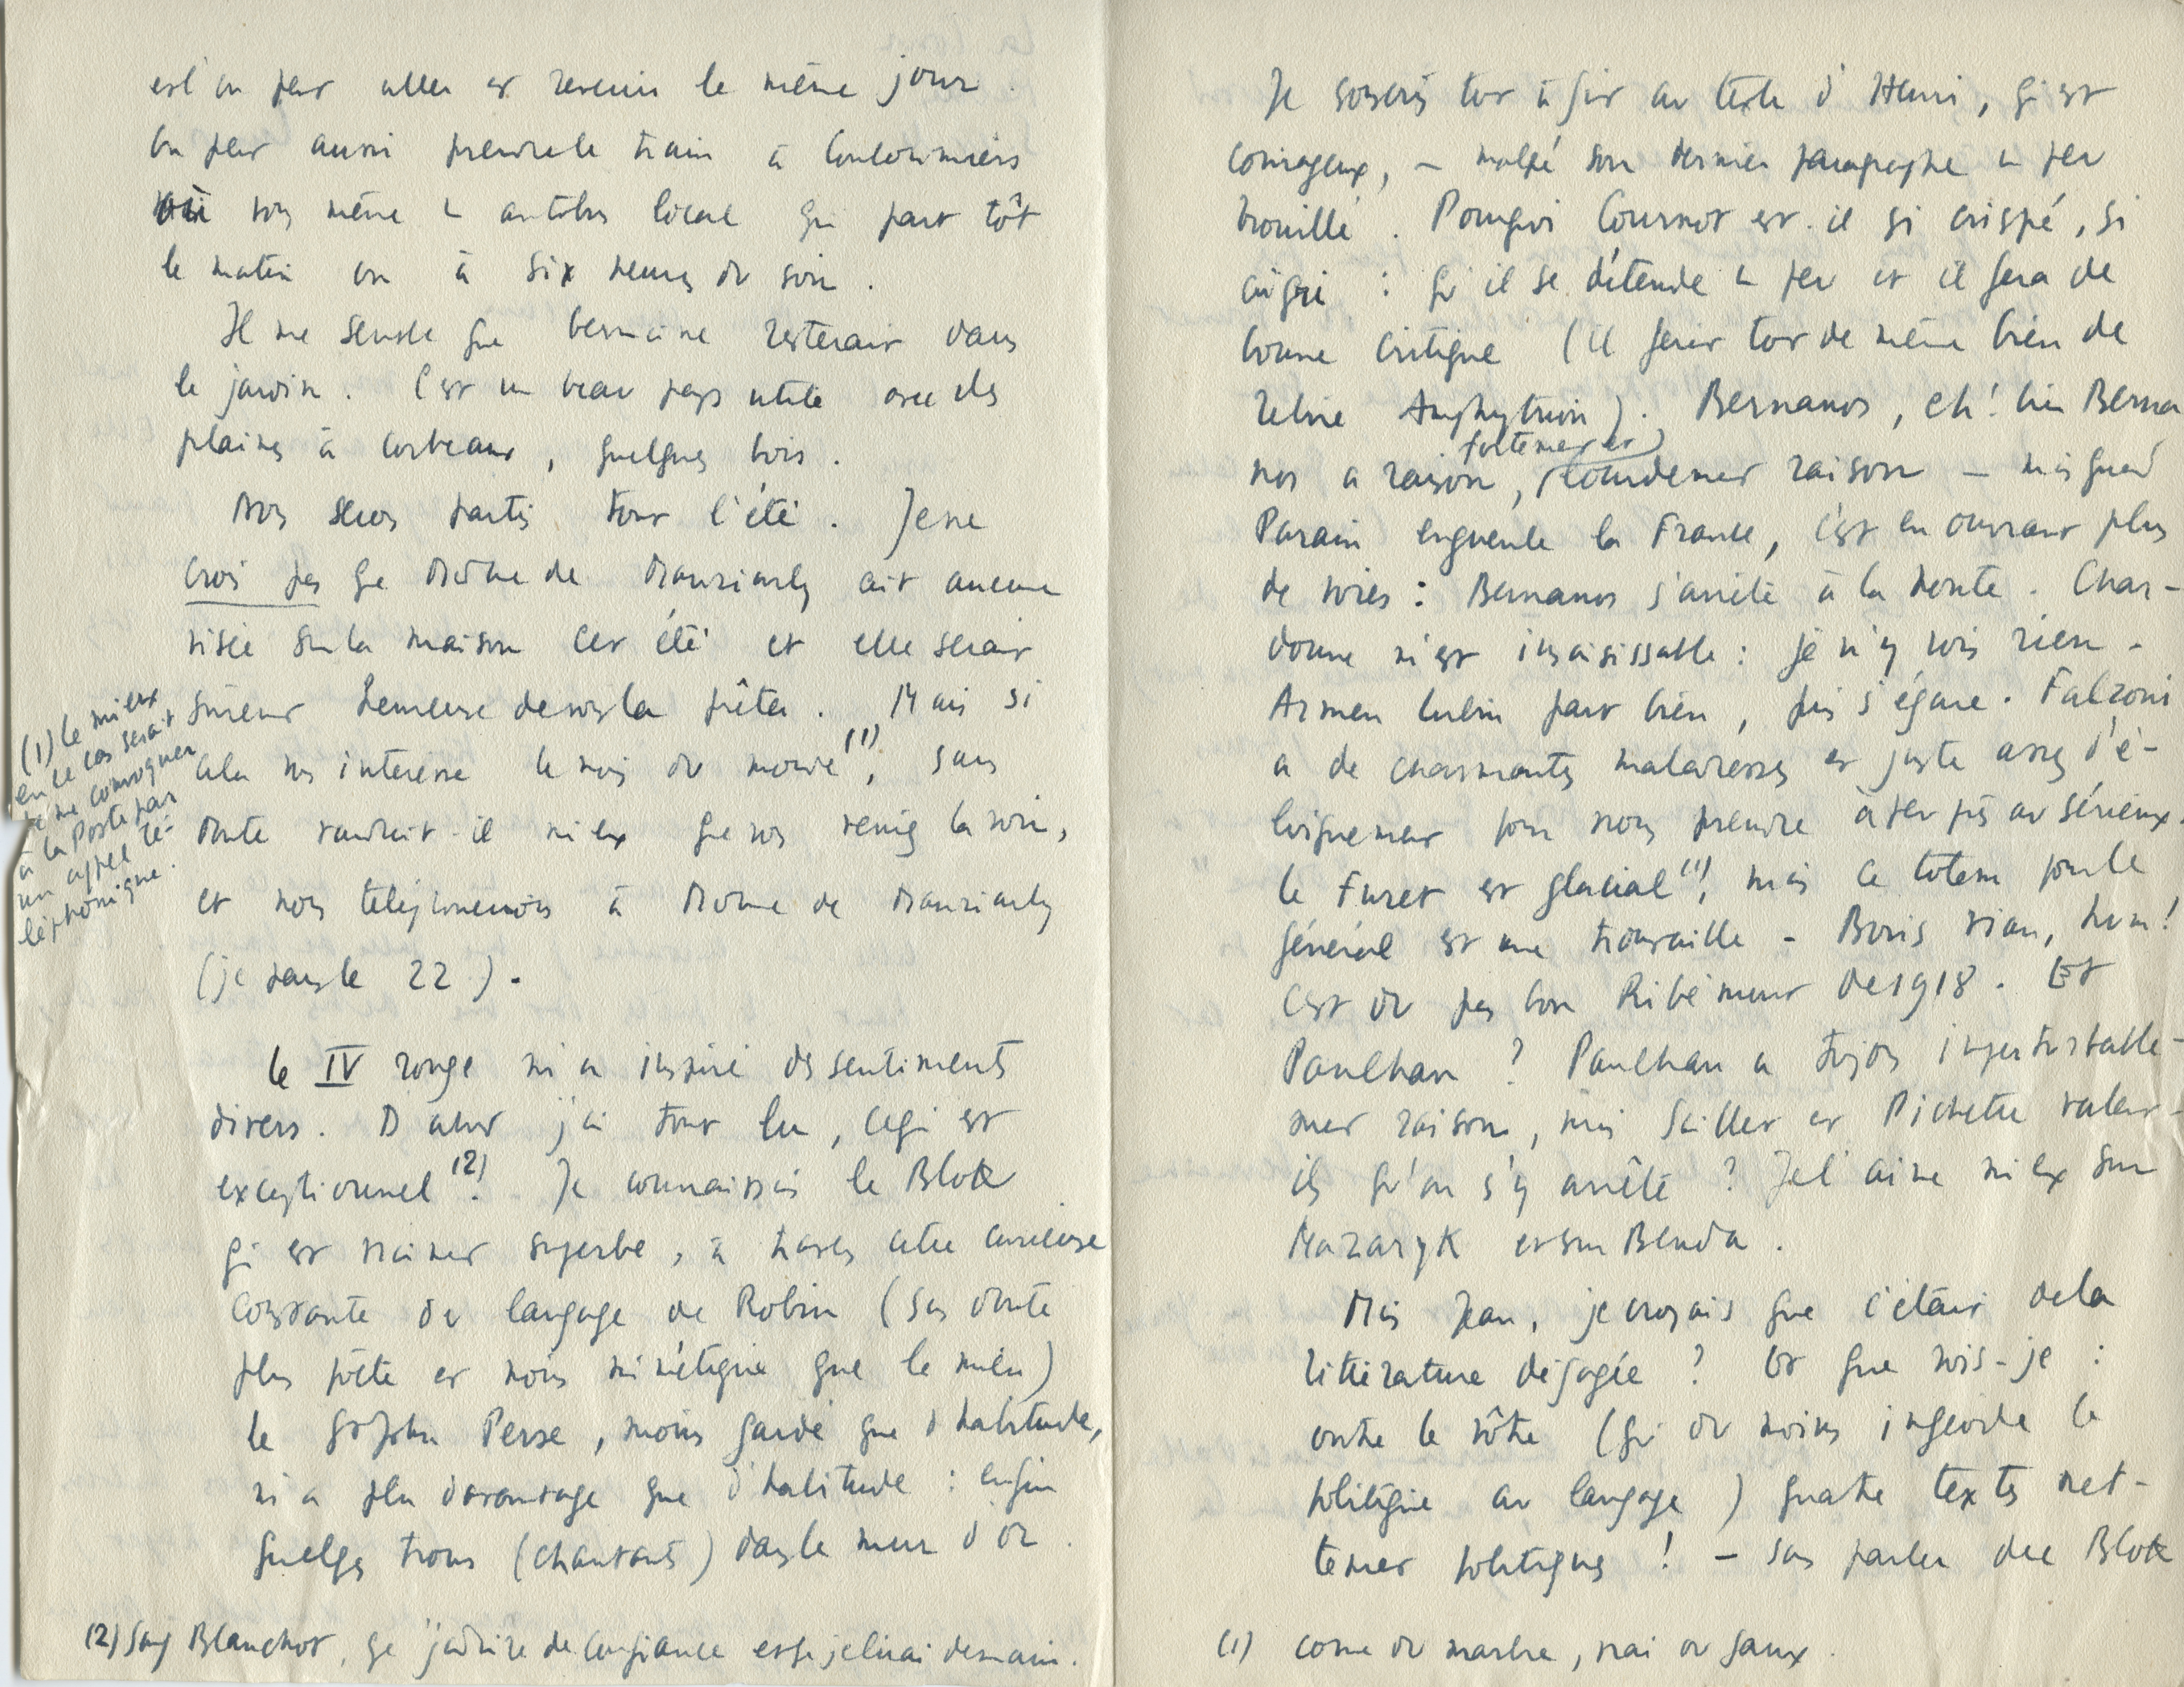 est on peut aller et revenir le même jour.
On peut aussi prendre le train à Coulommiers
où vous mène un autobus local qui part tôt
le matin ou à six heures du soir.
Il me semble que Germaine resterait dans
le jardin. C'est un beau pays utile avec des
plaines à corbeaux, quelques bois.
Nous serons partis tout l'été. Je ne
crois pas que Mme de Mauriarly ait aucune
visée sur la maison cet été et elle serait
sûrement heureuse de vous la prêter. Mais si
cela vous intéresse le mois du monde (1), sans
doute vaudrait-il mieux que vous veniez la voir,
et nous téléphonerions à Mme de Mauriarly
(je pars le 22).
(1) le mieux
en ce cas serait
de me convoquer
à la Poste par
un appel té-
léphonique.
Le IV rouge m'a inspiré des sentiments
divers. D'abord j'ai tout lu, ce qui est
exceptionnel (2). Je connaissais le Blok
qui est vraiment superbe, à travers cette curieuse
constante du langage de Robin (sans doute
plus poète et moins mimétique que le mien)
le St John Perse, moins gardé que d'habitude,
m'a plu davantage que d'habitude : enfin
quelques trous (chantants) dans le mur d'or.
(2) Sauf Blanchot, que j'admire de confiance et que je lirai demain.
Je souscris tout à fait au texte d'Henri, qui est
courageux, – malgré son dernier paragraphe un peu
brouillé. Pourquoi Cournot est-il si crispé, si
aigri : qu'il se détende un peu et il fera de
bonne critique (il ferait tout de même bien de
relire Amphytrion). Bernanos, eh! bien Berna
nos a raison, (fortement et) lourdement raison – mais quand
Parain engueule la France, c'est en ouvrant plus
de voies : Bernanos s'arrête à la honte. Char-
donne m'est insaisissable : je n'y vois rien –
Armen Lubin part bien, puis s'égare. Falzoni
a de charmantes maladresses et juste assez d'é-
loignement pour nous prendre à peu près au sérieux.
Le Furet est glacial (1), mais ce totem pour le
général est une trouvaille – Boris Vian, hum!
C'est du pas bon Ribemont de 1918. Et
Paulhan ? Paulhan a toujours imperturbable-
ment raison, mais Sciller et Pichette valent-
ils qu'on s'y arrête ? Je l'aime mieux sur
Mazaryk et sur Benda.
Mais Jean, je croyais que c'était de la
littérature dégagée ? Or que vois-je :
outre le vôtre (qui du moins inféode le
politique au langage) quatre textes net-
tement politiques ! – sans parler du Blok
(1) comme du marbre, vrai ou faux.